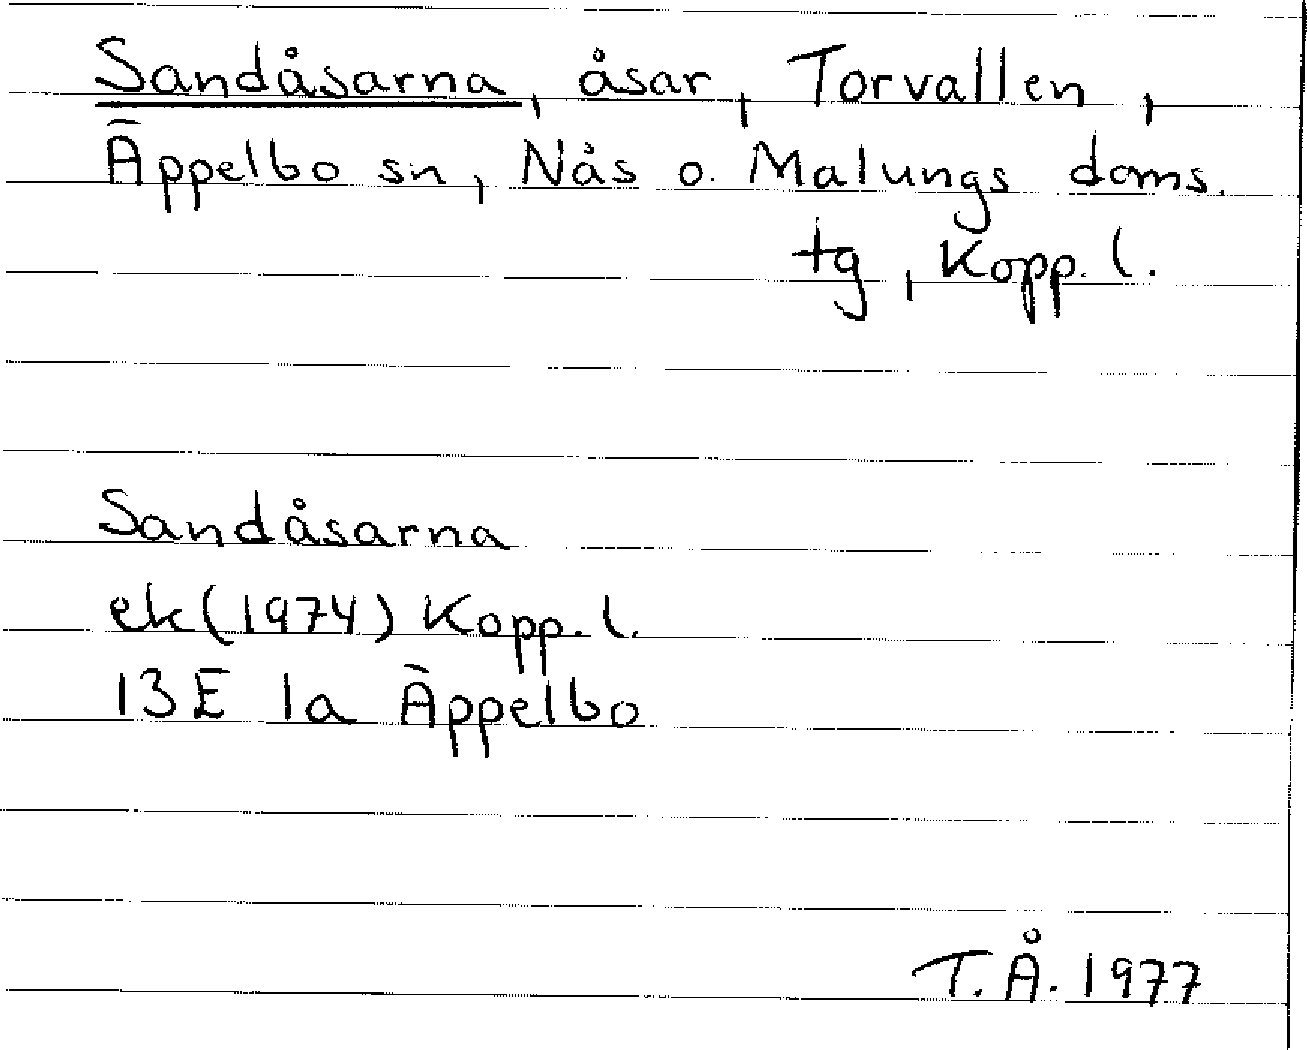 Sandåsarna, åsar, Torvallen,
Äppelbo sn, Nås o. Malungs doms.
tg, Kopp. l.
Sandåsarna
ek (1974) Kopp. l.
13E 1a Äppelbo
T. Å. 1977